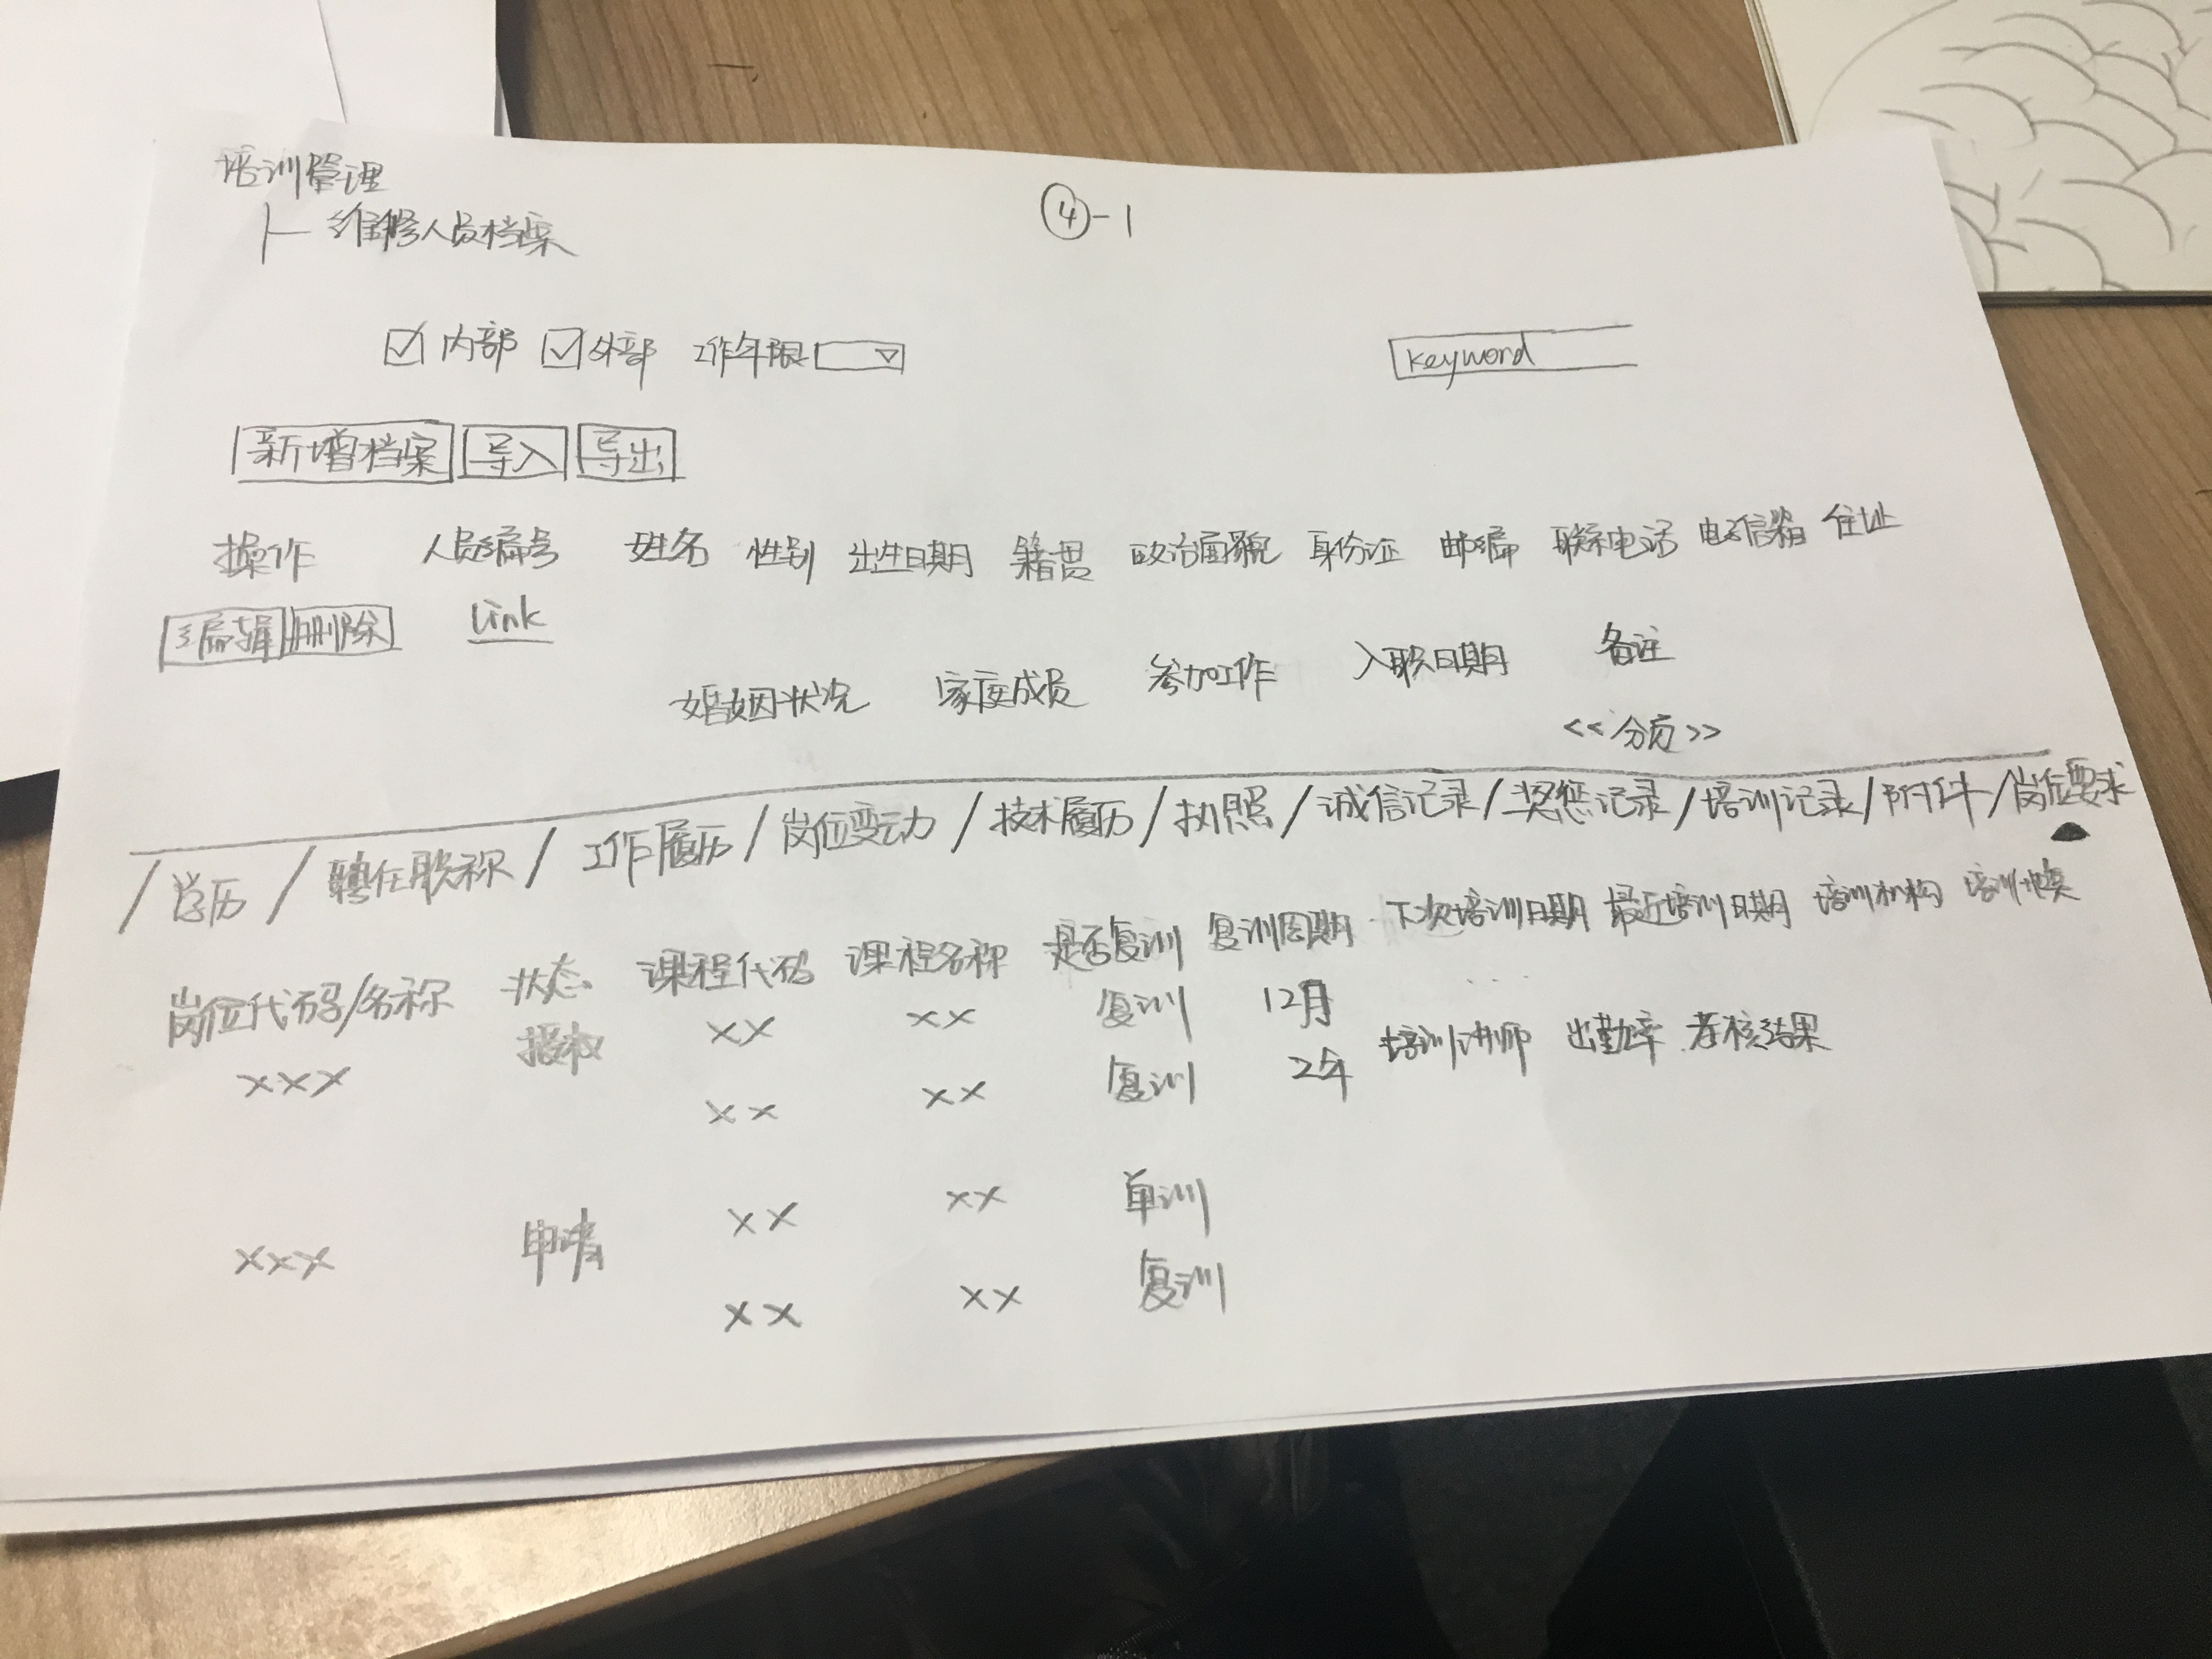 培训管理
├ 维修人员档案
④-1
☑ 内部 ☑ 外部 工作年限 keyword
新增档案 导入 导出
操作 人员编号 姓名 性别 出生日期 籍贯 政治面貌 身份证 邮编 联系电话 电子信箱 住址
编辑 删除 Link
婚姻状况 家庭成员 参加工作 入职日期 备注
<< 分页 >>
/ 学历 / 聘任职称 / 工作履历 / 岗位变动 / 技术履历 / 执照 / 诚信记录 / 奖惩记录 / 培训记录 / 附件 / 岗位要求
岗位代码/名称 状态 课程代码 课程名称 是否复训 复训周期 下次培训日期 最近培训日期 培训机构 培训
xxx 授权 xx xx 复训 12月 培训讲师 出勤率 考核结果
xx xx 复训 2年
xxx 申请 xx xx 单训
xx xx 复训